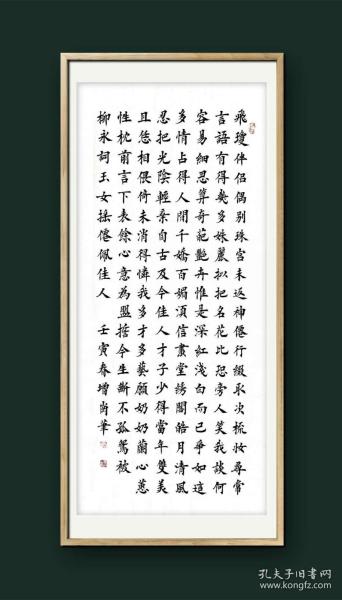 飛瓊伴侶偶别珠宫未返神僊行綴取次梳妝尋常
言語有得幾多姝麗拟把名花比恐旁人笑我談何
容易細思算奇葩艷卉惟是深紅淺白而已爭如這
多情占得人間千嬌百媚須信畫堂綉閣皓月清風
忍把光陰輕棄自古及今佳人才子少得當年雙美
且恁相偎倚未消得憐我多才多藝願奶奶蘭心蕙
性枕前言下表餘心意為盟誓今生斷不孤鴛被
柳永詞玉女摇僊佩佳人 壬寅春增尚筆
孔夫子旧书网